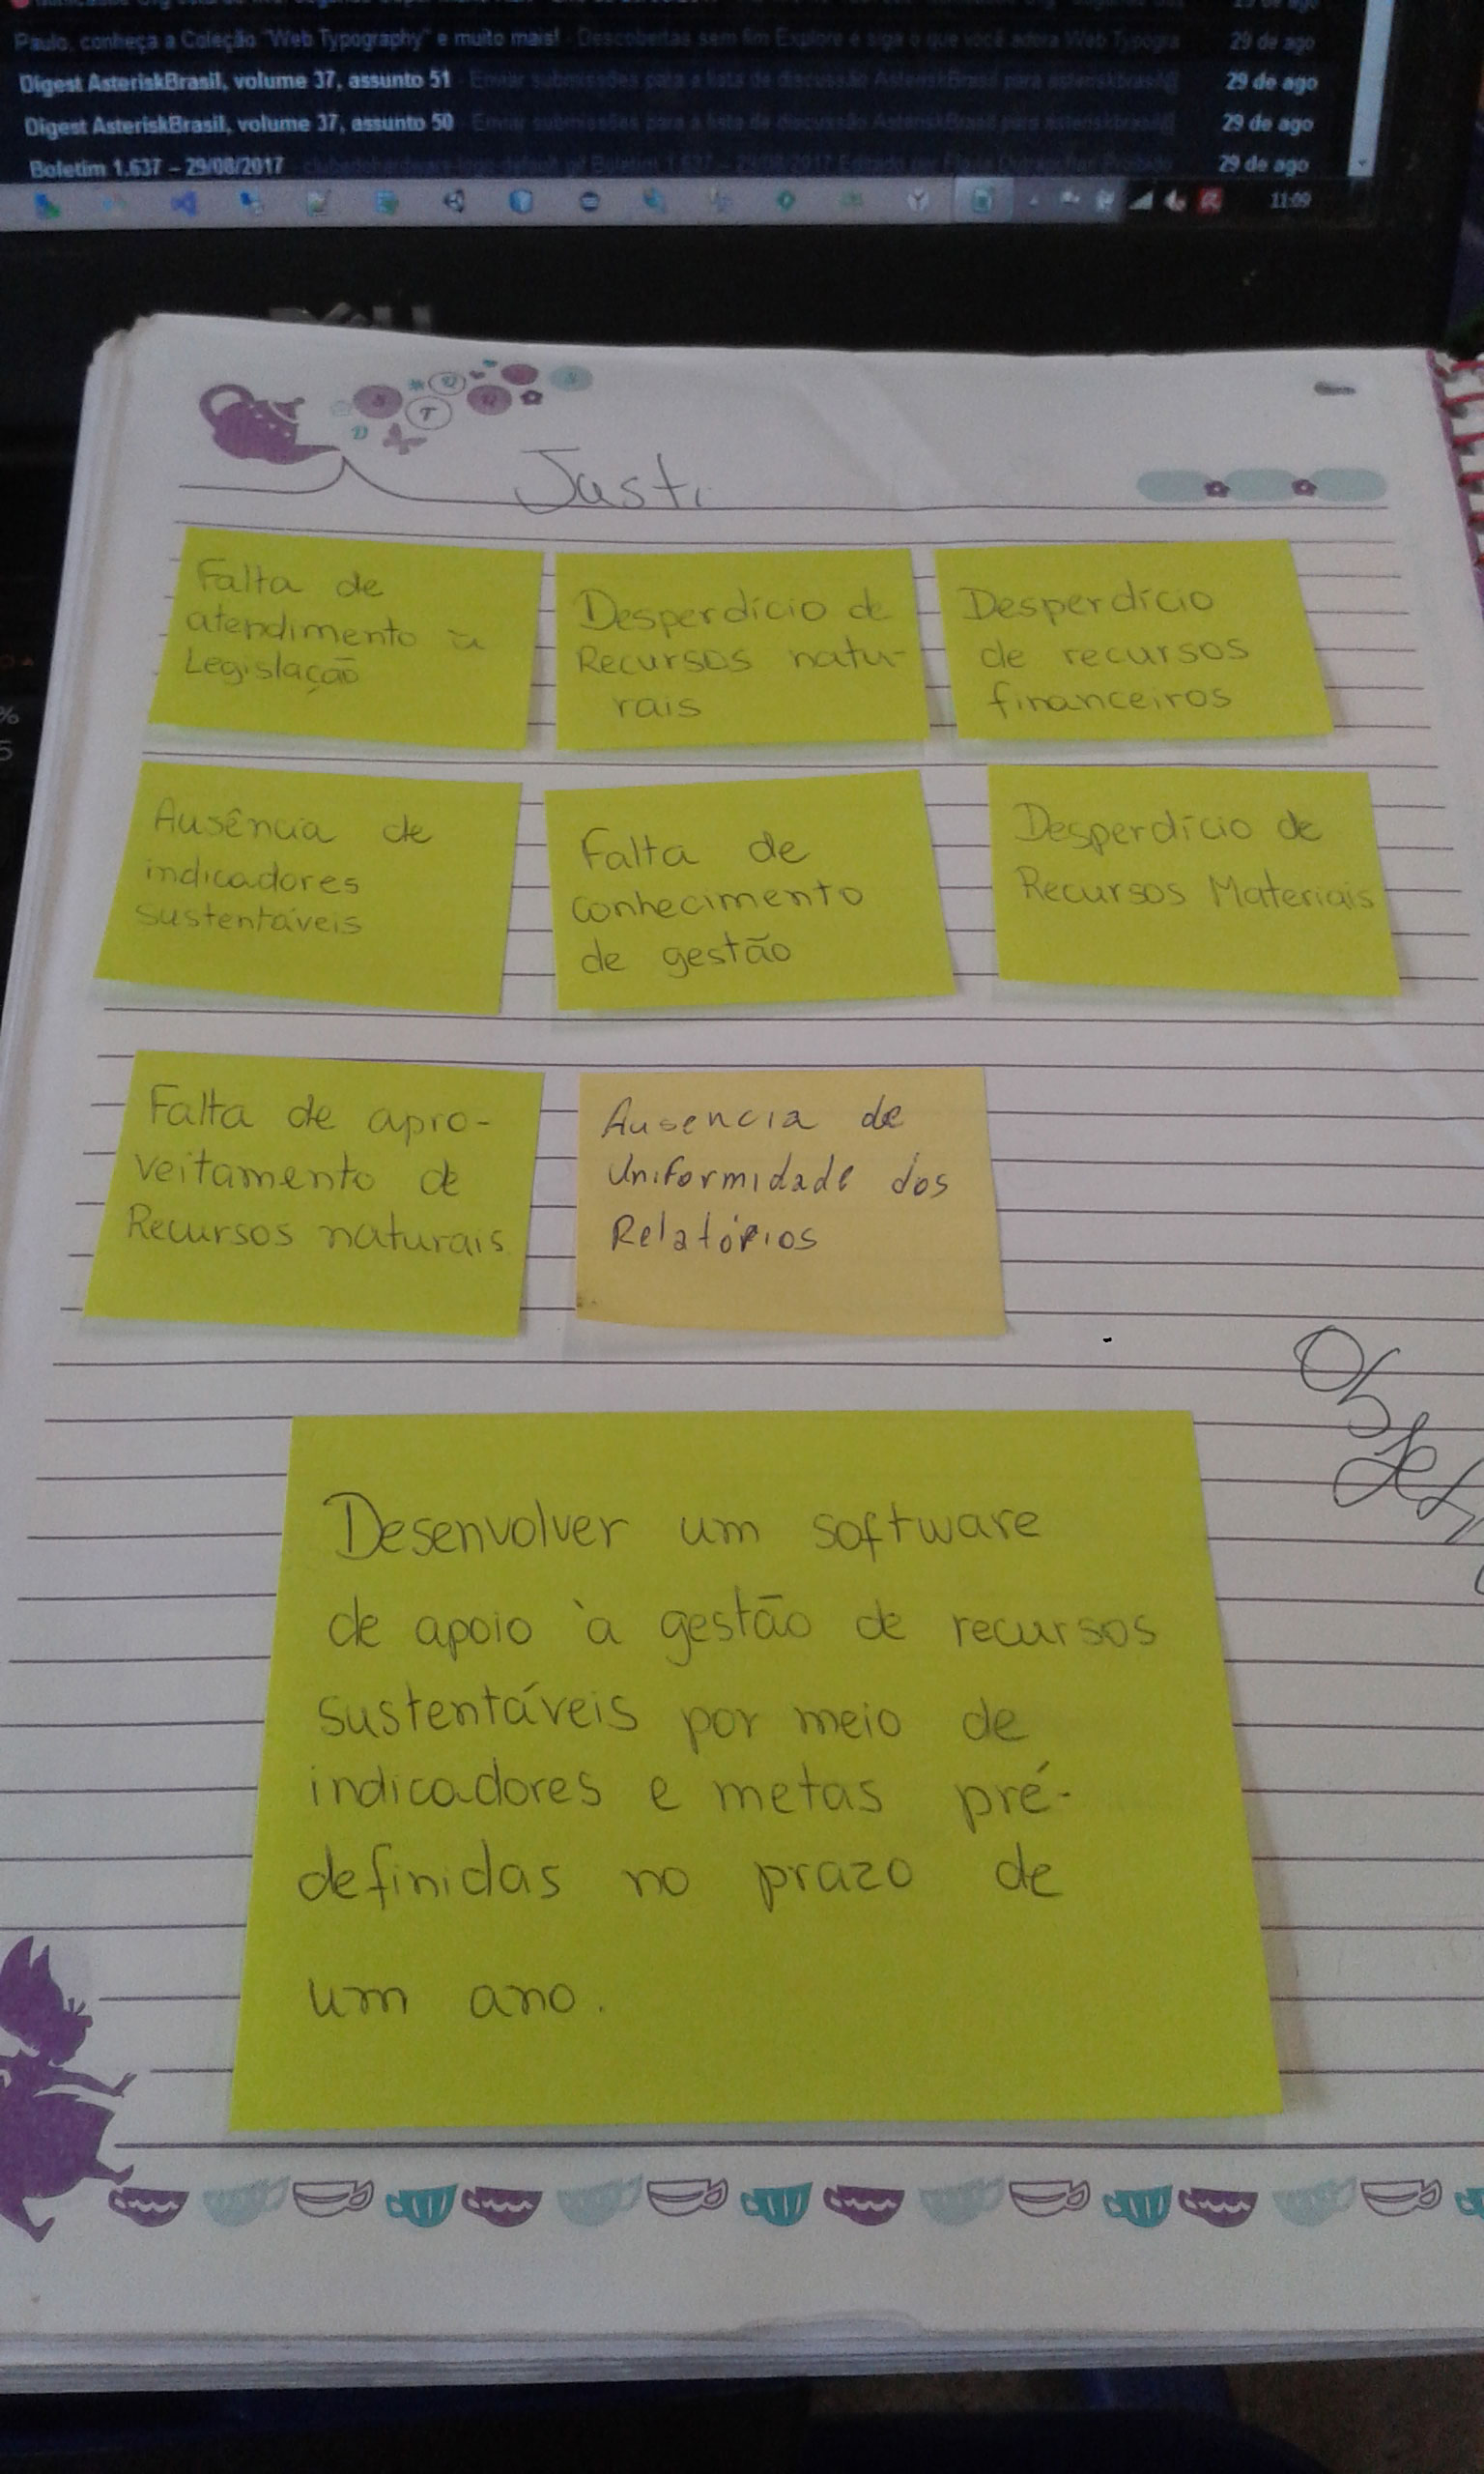 Paulo, conheça a Coleção "Web Typography" e muito mais! - Descobertas sem fim Explore e siga o que você adora Web Typogra 29 de ago
Digest AsteriskBrasil, volume 37, assunto 51 - Enviar submissões para a lista de discussão AsteriskBrasil para asteriskbrasil@ 29 de ago
Digest AsteriskBrasil, volume 37, assunto 50 - Enviar submissões para a lista de discussão AsteriskBrasil para asteriskbrasil@ 29 de ago
Boletim 1.637 – 29/08/2017 29 de ago
11:09
DELL
Justi
Falta de
atendimento à
Legislação
Desperdício de
Recursos natu-
rais
Desperdício
de recursos
financeiros
Ausência de
indicadores
sustentáveis
Falta de
conhecimento
de gestão
Desperdício de
Recursos Materiais
Falta de apro-
veitamento de
Recursos naturais
Ausencia de
Uniformidade dos
Relatórios
Objet
Desenvolver um software
de apoio à gestão de recursos
sustentáveis por meio de
indicadores e metas pré-
definidas no prazo de
um ano.